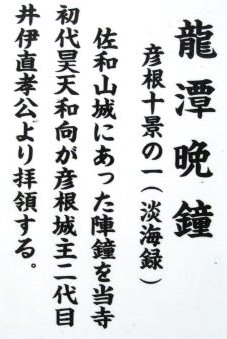 龍潭晩鐘
彦根十景の一(淡海録)
佐和山城にあった陣鐘を当寺
初代昊天和向が彦根城主二代目
井伊直孝公より拝領する。